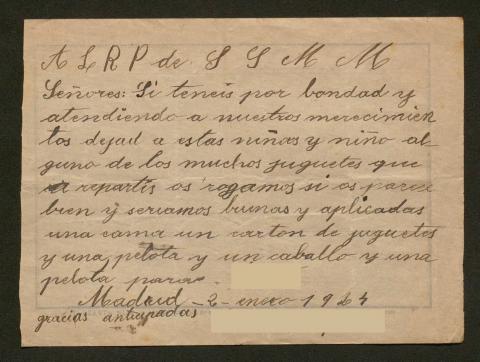 A L R P de S S M M
Señores: Si teneis por bondad y
atendiendo a nuestros merecimien
tos dejad a estas niñas y niño al
guno de los muchos juguetes que
repartis os rogamos si os parece
bien y seriamos buenas y aplicadas
una cama un carton de juguetes
y una pelota y un caballo y una
pelota para
Madrid - 2 - enero 1924
gracias anticipadas